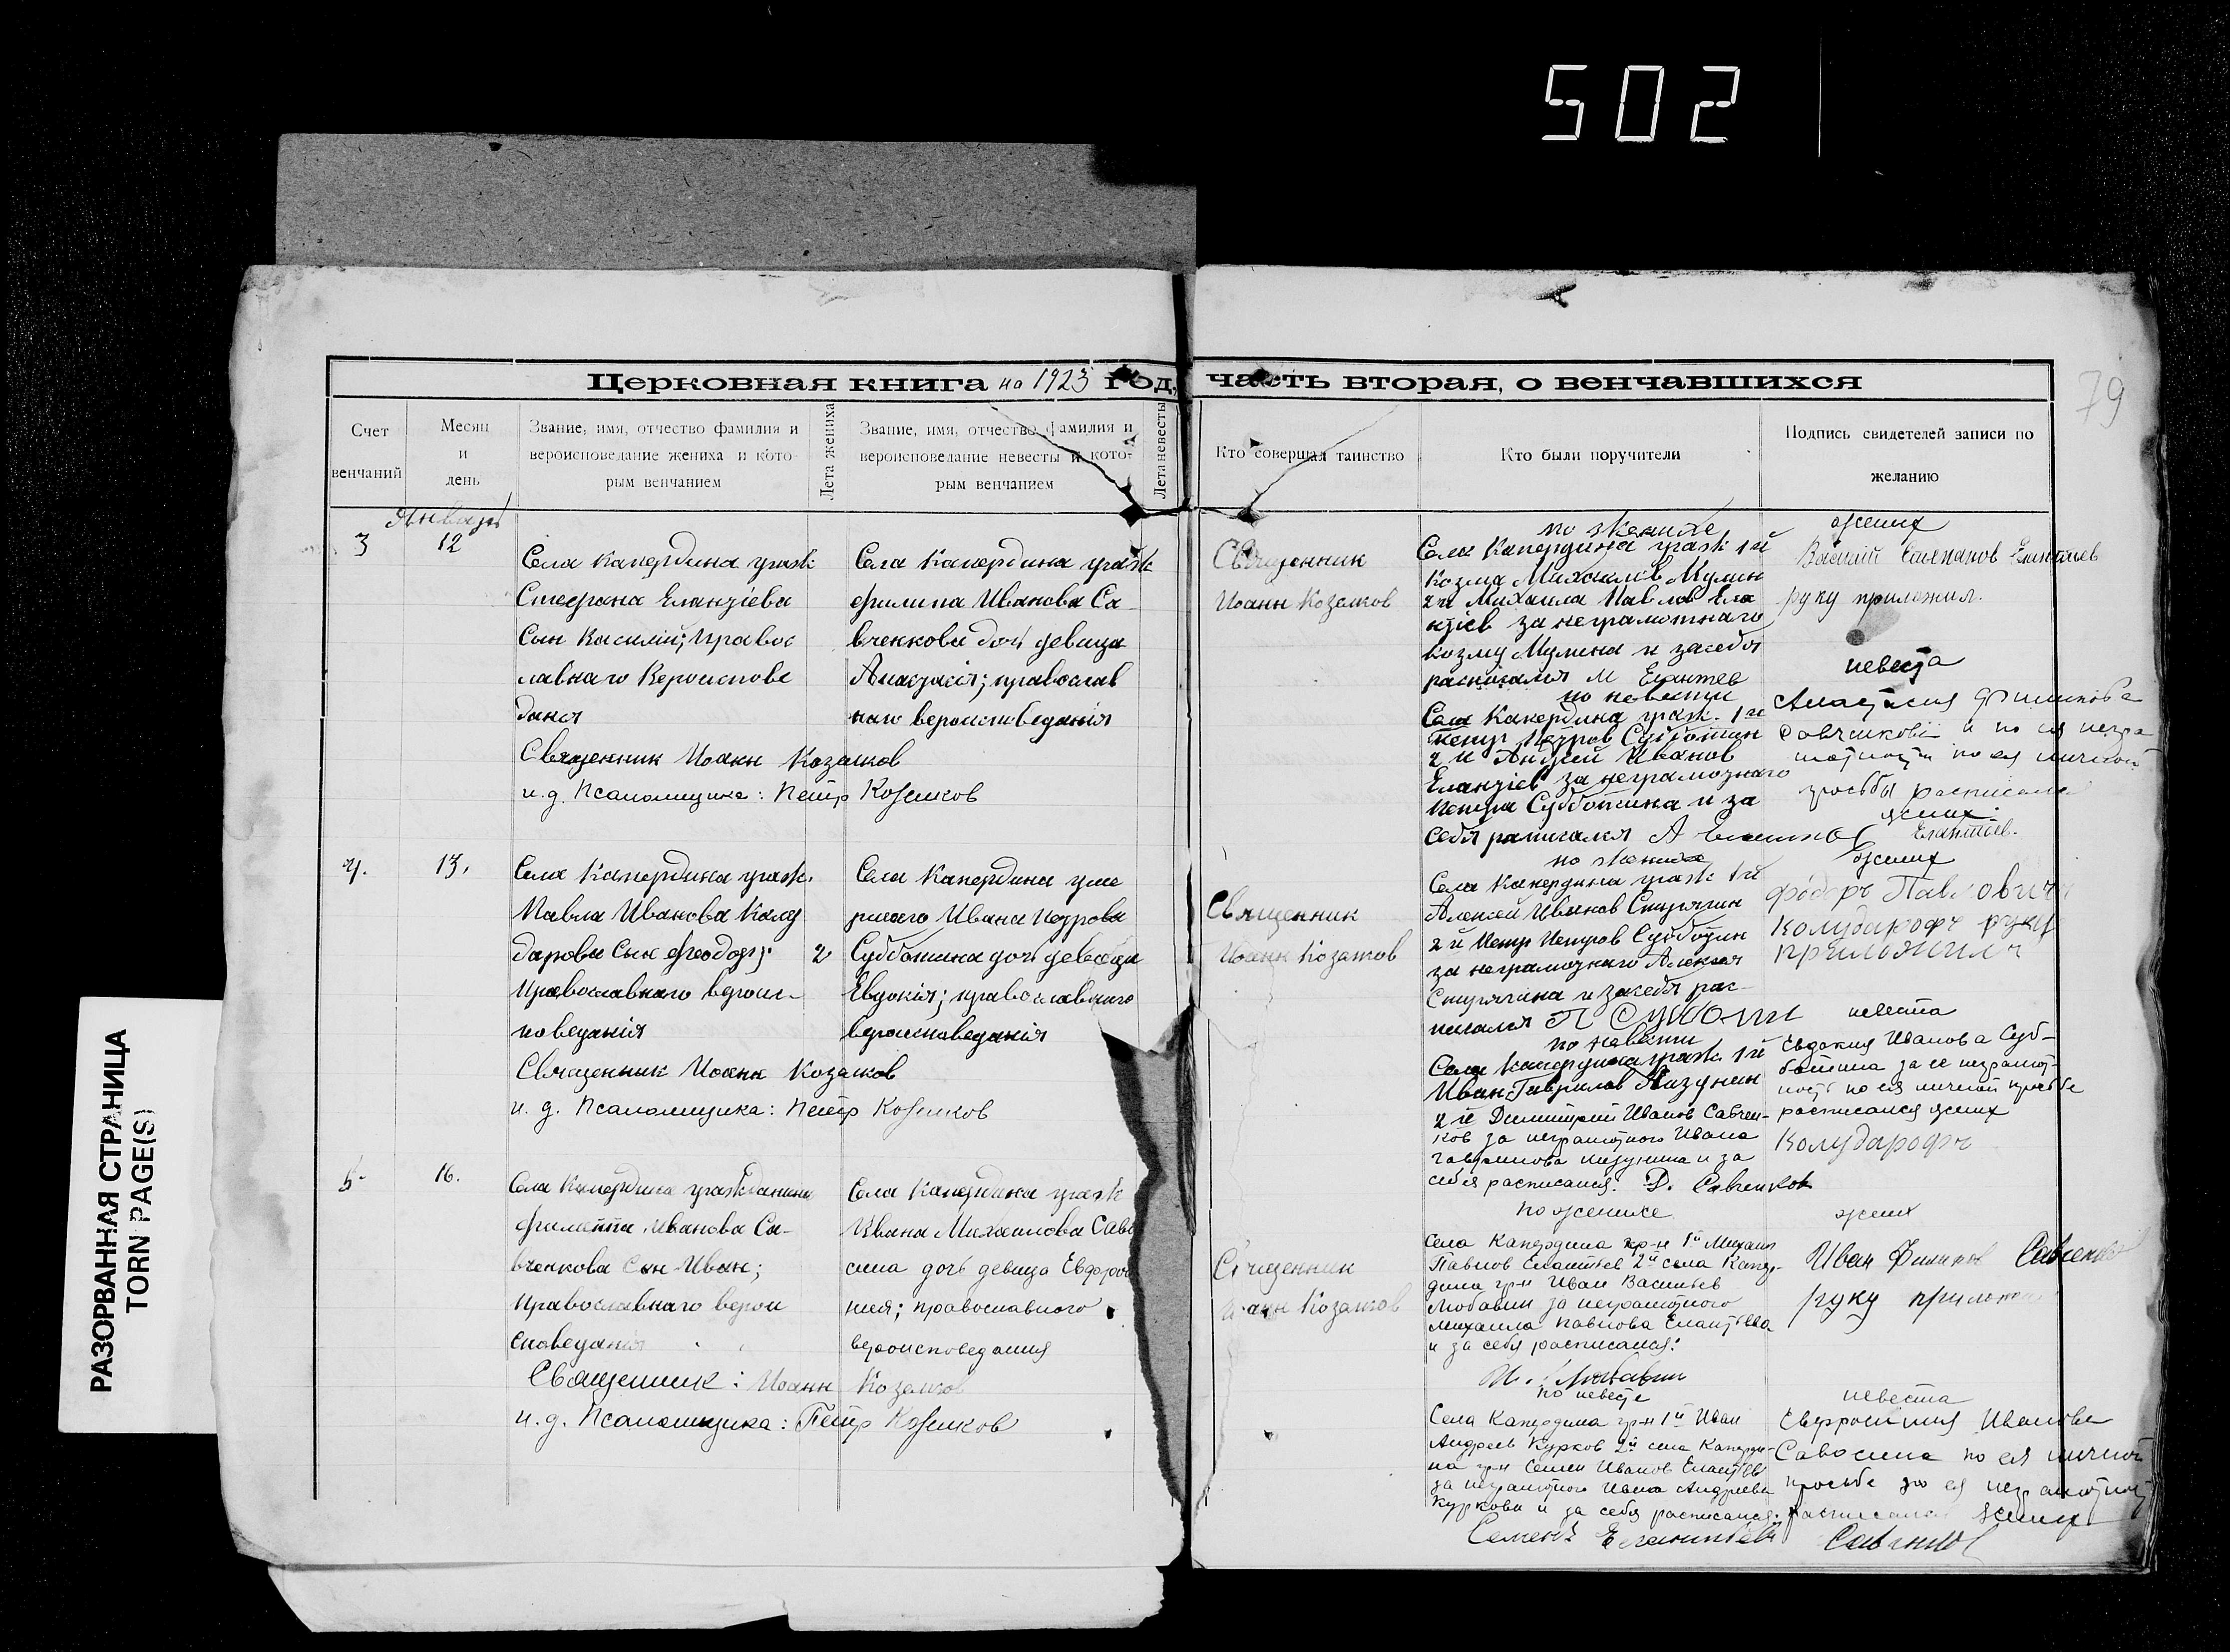 502
79
РАЗОРВАННАЯ СТРАНИЦА
TORN PAGE(S)
Церковная книга на 1923 год, часть вторая, о венчавшихся
Счет венчаний
Месяц и день
Звание, имя, отчество фамилия и
вероисповедание жениха и кото-
рым венчанием
Лета жениха
Звание, имя, отчество фамилия и
вероисповедание невесты и кото-
рым венчанием
Лета невесты
Кто совершал таинство
Кто были поручители
Подпись свидетелей записи по
желанию
Январь
3
12
Села Капердина гражд
Стефана Елантіева
Сын Василий; Правос
лавнаго Вероиспове
дания
Села Капердина гражд
Филипа Иванова Са-
вченкова дочь девица
Анастасія; православ
наго вероисповеданія
Священник Иоанн Козлов
и. д. Псаломщика: Петр
Священник
Иоанн
по женихе
Села Капердина гражд. 1й
Козма Михаилов Мулин
2й Михаила Павлов Ела
нтіев за неграмотнаго
Козму Мулина и за себя
расписался М Елантев
по невести
Села Капердина гражд. 1й
Петр Петров Субботин
2й Андрей Иванов
Елантіев за неграмотнаго
Петра Субботина и за
себя расписался А
жених
Василий Степанов Елантиев
руку приложил.
невеста
Анастасия Филипова
Савченкова и по ея негра
мотности по ея личной
просьбы расписался
жених
Елантиев.
4.
13.
Села Капердина гражд.
Павла Иванова Калу
дарова Сын Феодор;
Православнаго вероис-
поведанія
2
Села Капердина уме
ршаго Ивана Петрова
Субботина дочь девица
Евдокія; православнаго
вероисповеданія
Священник Иоанн
и. д. Псаломщика: Петр
Священник
Иоанн
по жениха
Села Капердина гражд 1й
Алексей Иванов Стрягин
2й Петр Петров Субботин
за неграмотнаго Алексея
и за себя рас-
писался П Субботин
по невести
Села Капердина гражд. 1й
Иван Гаврилов
2й Димитрий Иванов Савчен-
ков за неграмотного Ивана
Гаврилова и за
себя расписался. Д. Савченков
жених
Фёдоръ Павловичъ
Колударофъ руку
приложилъ
невеста
Евдокия Иванова Суб-
ботина за ее неграмот-
ность по ея личной просьбе
расписался жених
Колударофъ
5.
16.
Села Капердина гражданина
Филиппа Иванова Са-
вченкова Сын Иван;
Православнаго верои
споведанія
Села Капердина гражд
Ивана Михаилова Саво
сина дочь девица Евфроси
ния; православного
вероисповедания
Священник: Иоанн
и. д. Псаломщика: Петр
Священник
Иоанн
по женихе
Села Капердина гр-н 1й Михаил
Павлов Елантиев 2й села Капер-
дина гр-н Иван Васильев
Любавин за неграмотного
Михаила Павлова Елантиева
и за себя расписался:
И. Любавин
по невесте
Села Капердина гр-н 1й Иван
Андреев Курков 2й села Каперди-
на гр-н Семен Иванов Елантиев
за неграмотного Ивана Андреева
Куркова и за себя расписался.
Семенъ Елантиев
жених
Иван Филипов Савченков
руку приложил
невеста
Евфросиния Иванова
Савосина по ея личной
просьбе за ея неграмотность
расписался жених
Савченков